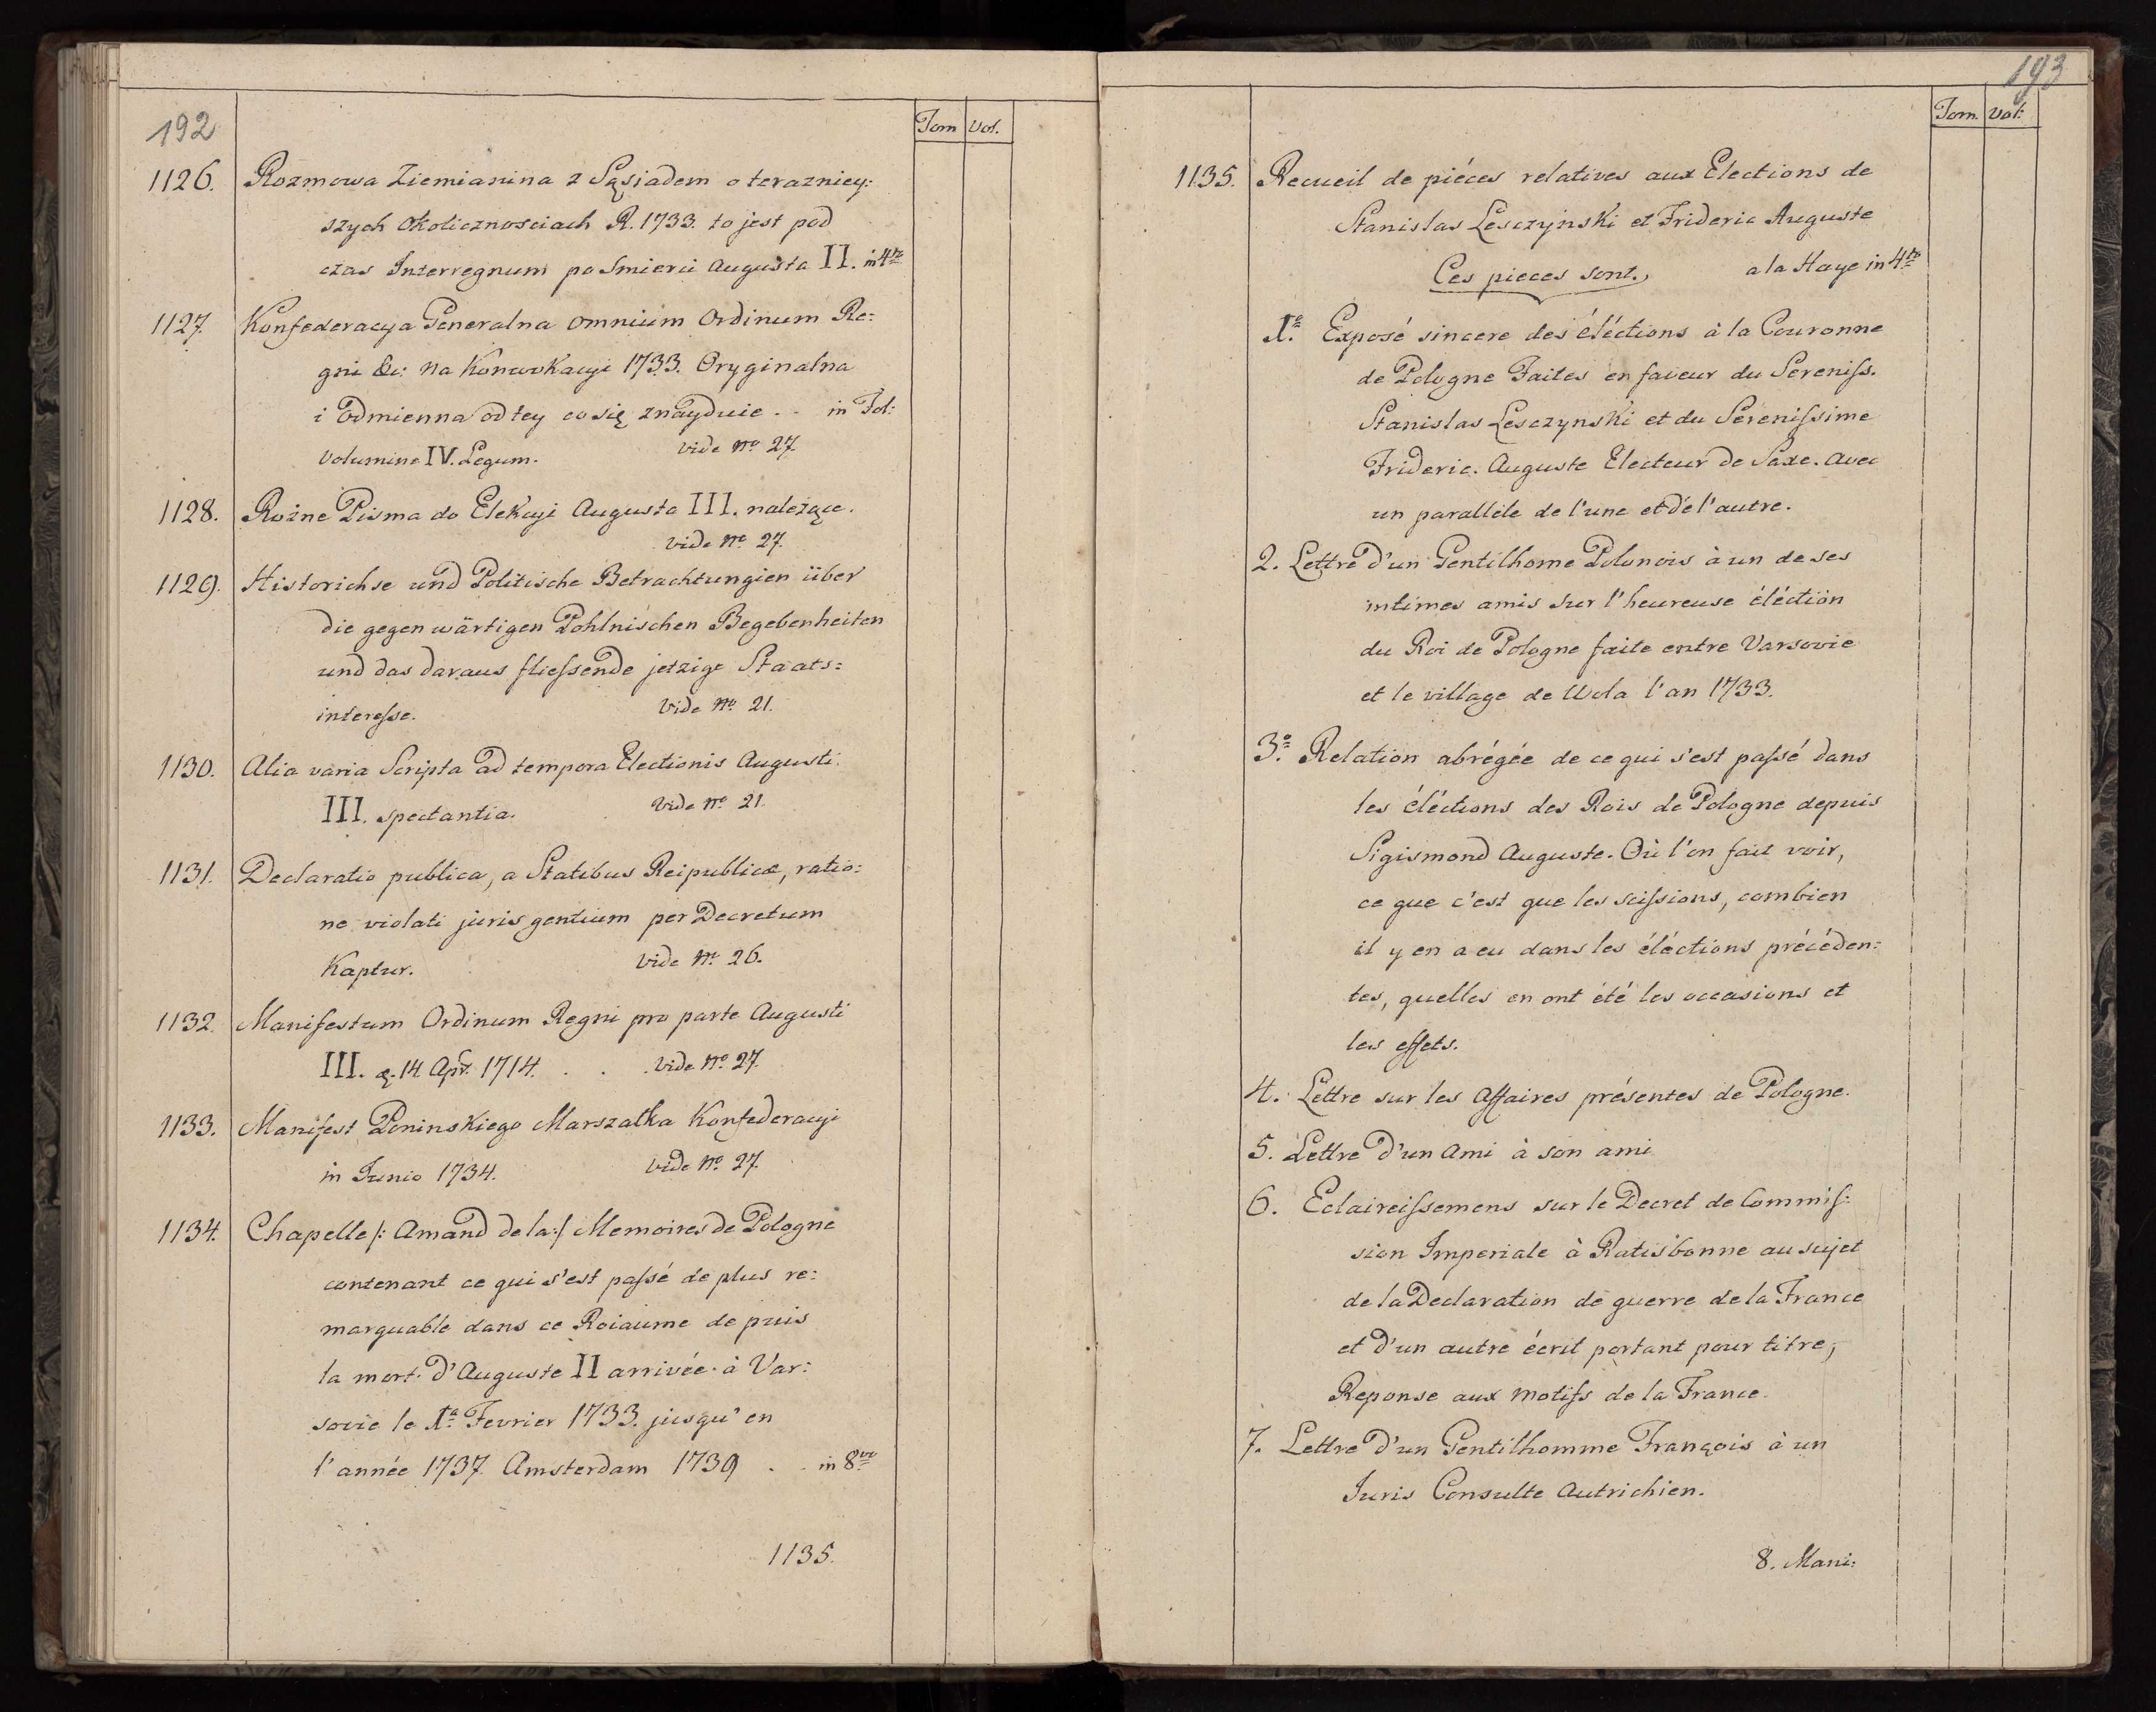 192
Tom Vol.
1126. Rozmowa Ziemianina z Sąsiadem o terazniey:
szych Okolicznosciach R. 1733. to jest pod
czas Interregnum po Smierci Augusta II. in 4to
1127. Konfederacya Generalna Omnium Ordinum Re:
gni &c: na Konwokacyi 1733. Oryginalna
i Odmienna od tey co się znayduie . . in Fol:
Volumine IV. Legum. vide No 27.
1128. Rożne Pisma do Elekcyi Augusta III. należące.
vide No 27.
1129. Historichse und Politische Betrachtungien über
die gegen wärtigen Pohlnischen Begebenheiten
und das daraus fliessende jetzige Staats:
interesse. Vide No 21.
1130. Alia varia Scripta ad tempora Electionis Augusti
III. spectantia. Vide No 21.
1131. Declaratio publica, a Statibus Reipublicæ, ratio:
ne violati juris gentium per Decretum
Kaptur. Vide No 26.
1132. Manifestum Ordinum Regni pro parte Augusti
III. 14 Apr. 1714. . . Vide No 27.
1133. Manifest Poninskiego Marszałka Konfederacyi
in Junio 1734. Vide No 27.
1134. Chapelle /: Amand de la :/ Memoires de Pologne
contenant ce qui s'est passé de plus re:
marquable dans ce Roiaume de puis
la mort d'Auguste II arrivée à Var:
sovie le 1a Fevrier 1733. jusqu'en
l'année 1737. Amsterdam 1739 . . in 8vo
1135.
193
Tom. Vol:
1135. Recueil de piéces relatives aux Elections de
Stanislas Lesczyński et Frideric Auguste
Ces pieces sont, a la Haye in 4to
1o. Exposé sincere des éléctions à la Couronne
de Pologne Faites en faveur du Sereniss.
Stanislas Lesczynski et du Serenissime
Frideric. Auguste Electeur de Saxe. avec
un paralléle de l'une et de l'autre.
2. Lettre d'un Gentilhome Polonois à un de ses
intimes amis sur l'heureuse éléction
du Roi de Pologne faite entre Varsovie
et le village de Wola l'an 1733.
3o. Relation abrégée de ce qui s'est passé dans
les éléctions des Rois de Pologne depuis
Sigismond Auguste. Où l'on fait voir,
ce que c'est que les scissions, combien
il y en a eu dans les éléctions précéden:
tes, quelles en ont été les occasions et
les effets.
4. Lettre sur les Affaires présentes de Pologne.
5. Lettre d'un Ami à son ami
6. Eclaircissemens sur le Decret de Commis:
sion Imperiale à Ratisbonne au sujet
de la Declaration de guerre de la France
et d'un autre écrit portant pour titre,
Reponse aux motifs de la France.
7. Lettre d'un Gentilhomme François à un
Juris Consulte Autrichien.
8. Mani: